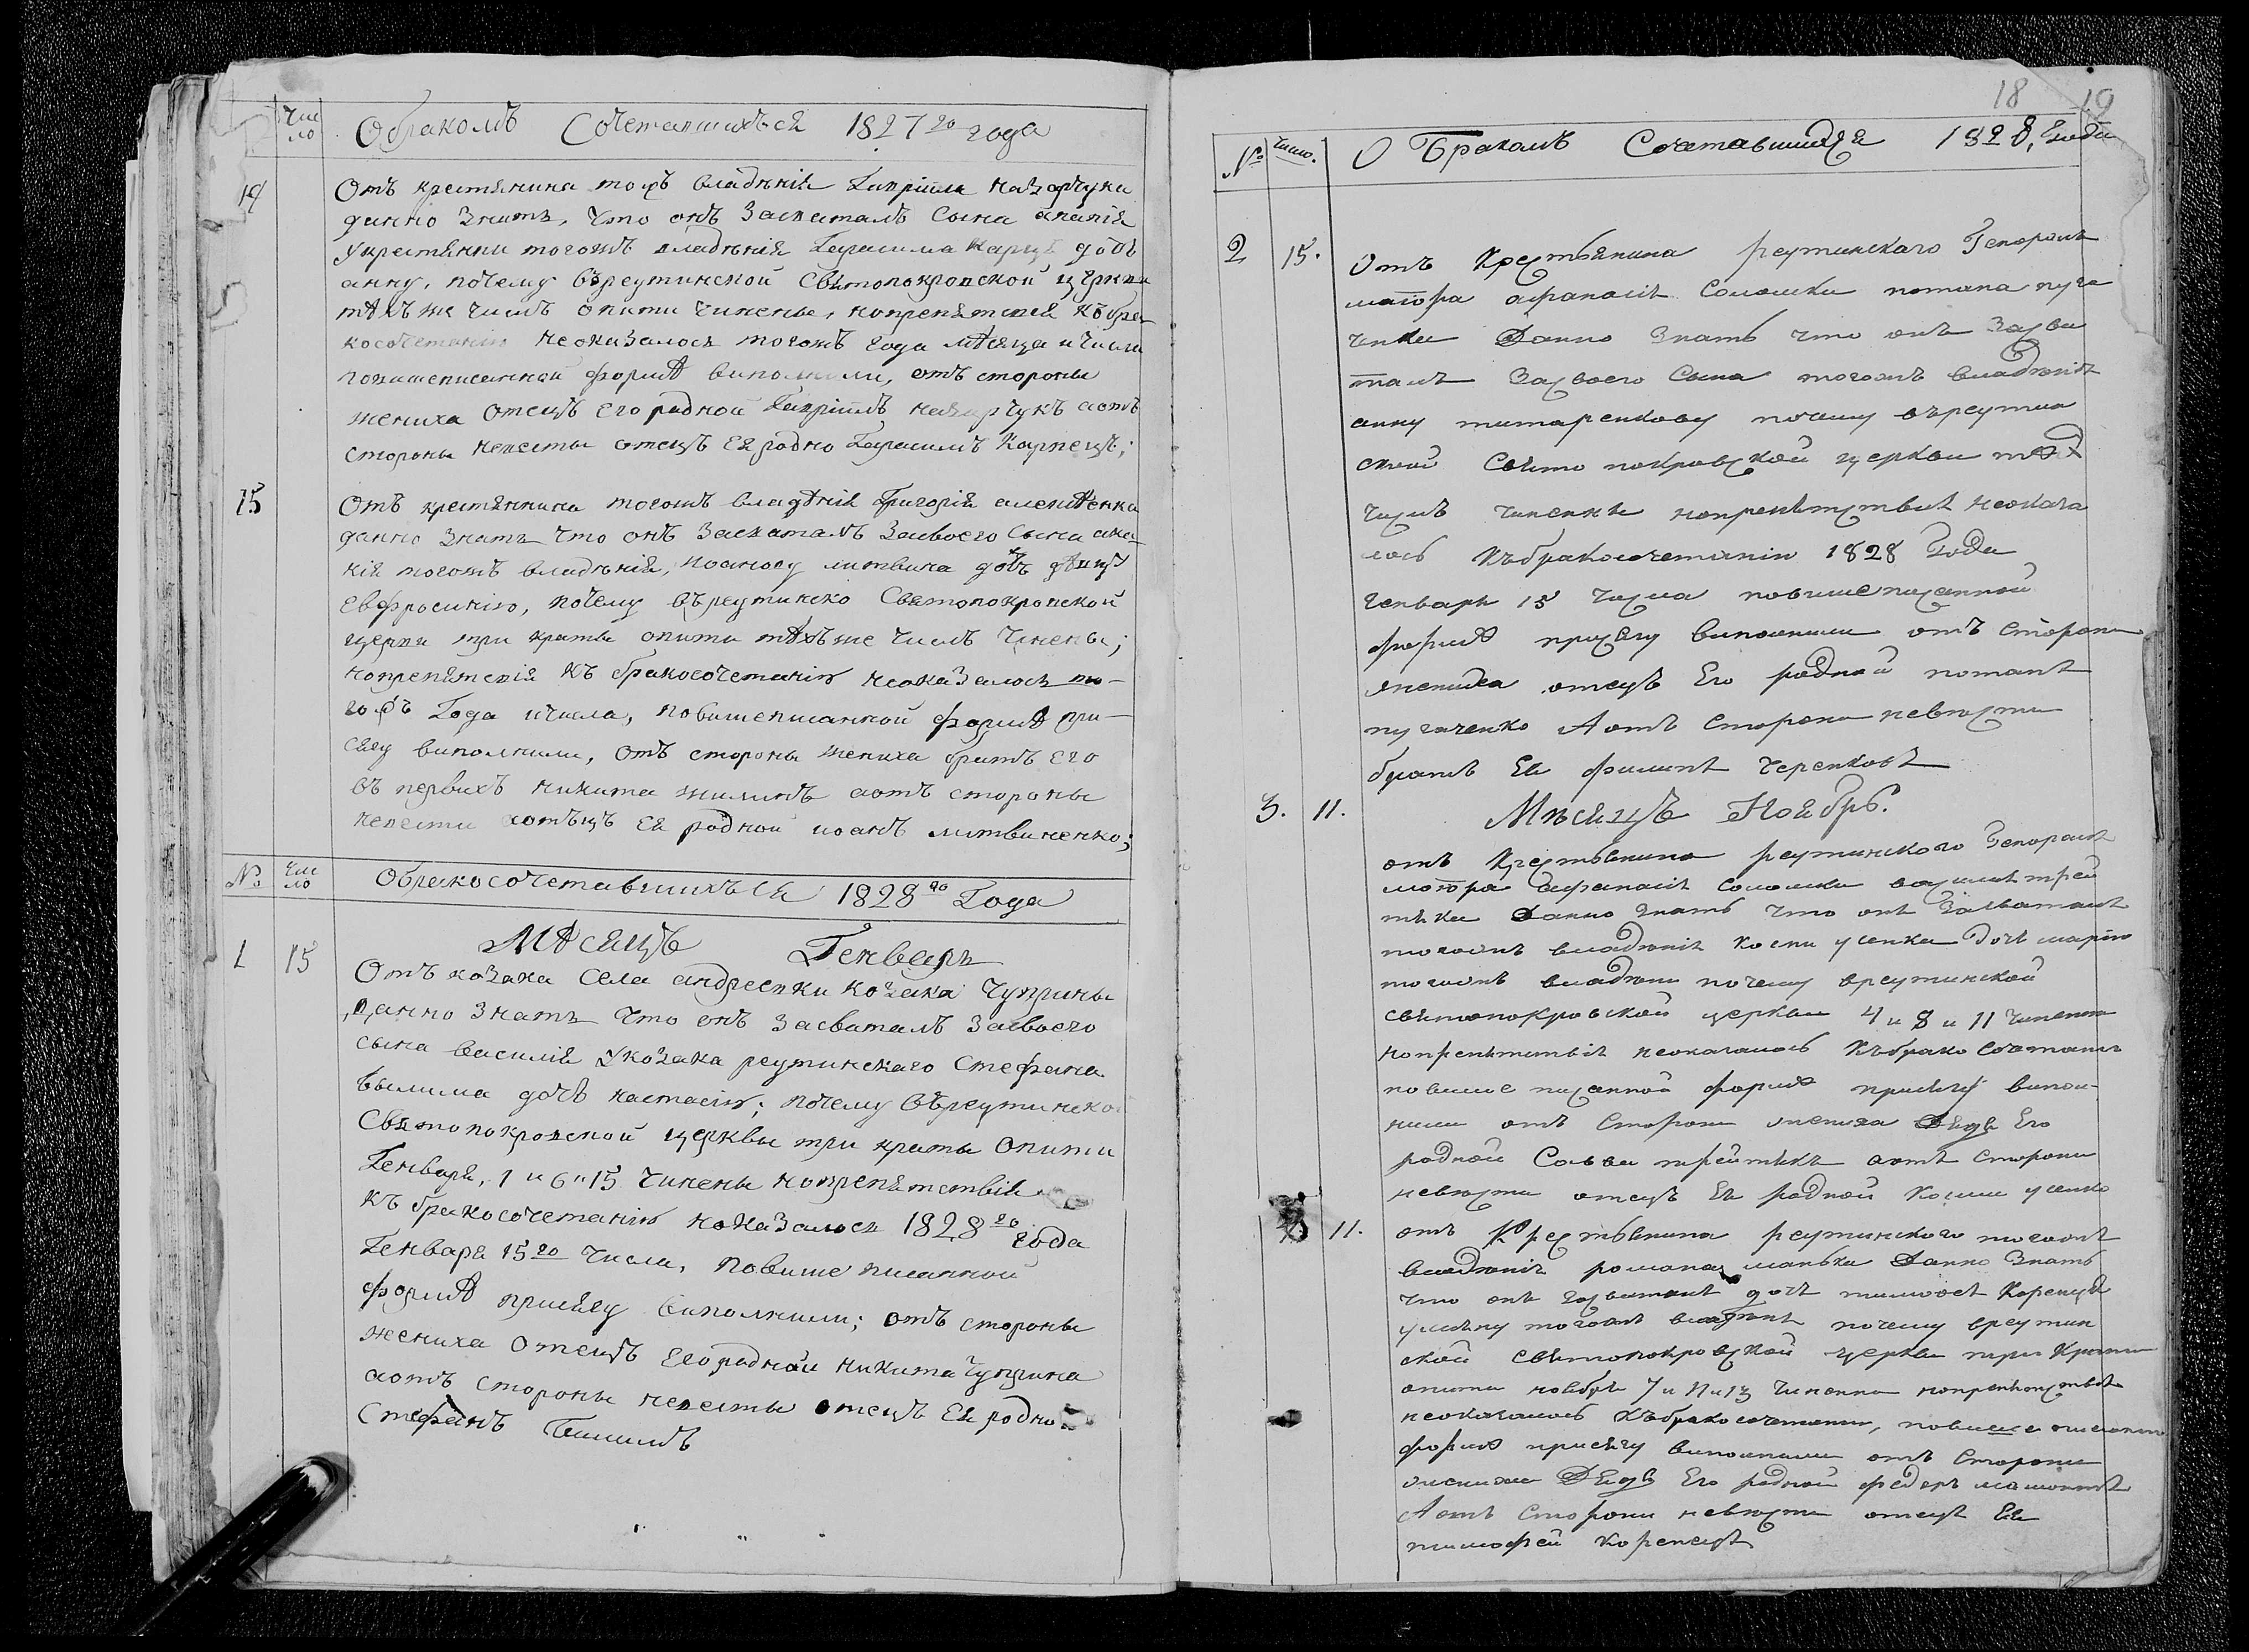 Чис
ло
Обракомъ Сочетавшихъся 1827го года
14
Отъ крестянина тогожъ владѣнія Гавріила Назарчука
данно знать, что онъ Засваталъ Сына
Укрестянина тогожъ владѣнія Герасима дочь
анну, почему Въреутинской Святопокровской церкви
тѣхъже Числъ опити Чинены, нопрепятствія Кобра
косочетанію неоказалось тогожъ года мѣсяца и Числа
повишеписанной формѣ виполнили, отъ стороны
жениха Отецъ Его родной Гавріилъ Назарчукъ аотъ
стороны невесты отецъ Ея родно Герасимъ Карпецъ;
15
Отъ крестянина тогожъ владѣнія Григорія
данно знать Что онъ Засваталъ Засвоего Сына ана
нія тогожъ владѣнія, Иоанову литвина дочъ дѣвицу
Евфросинію, почему въреутинско Святопокровской
церкви три краты опити тѣхъже Числъ Чинены;
нопрепятствія Къ бракосочетанію неоказалось то-
гожъ Года ичисла, повишеписанной формѣ при-
сягу виполнили, отъ стороны жениха братъ Его
въ первихъ никита аотъ стороны
невести аотъцъ Ея родной иоанъ литвиненко;
№ Чис
ло
Обракосочетавшихъся 1828го Года
Мѣсяцъ Генварь
1 15
Отъ козака Села андреевки козака Чуприны
данно знать что онъ Засваталъ Засвоего
сына василія Укозака реутинскаго Стефана
Вилима дочъ настасію; почему Въреутинской
Святопокровской церквы три краты Опити
Генваря, 1 и 6 и 15 Чинены нопрепятствія
къ бракосочетанію нокказалось 1828го года
Генваря 15го Числа, повише писанной
формѣ присягу виполнили; отъ стороны
жениха Отецъ Его родной никита Чуприна
аотъ стороны невесты отецъ Ея родной
Стефанъ Вилимъ
18 19
№ Число. О Бракомъ Сочетавшихся 1828, Года
2 15.
Отъ Крестьянина реутинскаго Генералъ
маіора афанасія Соломки потапа пуга
ченка Данно Знать что онъ Засва
талъ Засвоего Сына тогожъ владѣнія
анну титаренкову почему въреутин
ской Свято покровской церкви тѣхъ
числъ чинены нопрепятствія неоказа
лось Къбракосочетанію 1828 Года
генваря 15 Числа повишеписанной
формѣ присягу виполнили отъ Сторони
жениха отецъ Его родной потапъ
пугаченко Аотъ Сторони невѣсти
братъ Ея филипъ Черепковъ
Мѣсяцъ Ноябрь.
3. 11.
отъ Крестьянина реутинского Генералъ
маіора афанасія Соломки
Данно знать что онъ Засваталъ
тогожъ владѣнія Косми усенка дочъ марію
тогожъ владѣния почему вреутинской
святопокровской церкви 4 и 8 и 11 Чинены
нопрепятствія неоказалось Къбрако Сочетанію
повишеписанной формѣ присягу випол-
нили отъ Сторони жениха Его
родной Савва аотъ Сторони
невѣсти отецъ Ея родной Косма усенко
11.
отъ Крестьянина реутинского тогожъ
владѣнія романа Данно Знать
что онъ Засваталъ дочъ тимофея Корепця
тогожъ владѣнія почему вреутин
ской святопокровской церкви три Крати
опити ноября 7 и 11 и 13 Чинены нопрепятствія
неоказалось Къбракосочетанию, повише описанной
формѣ присягу виполнили отъ Сторони
жениха Его родной федоръ
Аотъ Сторони невѣсти отецъ Ея
тимофей Корепецъ